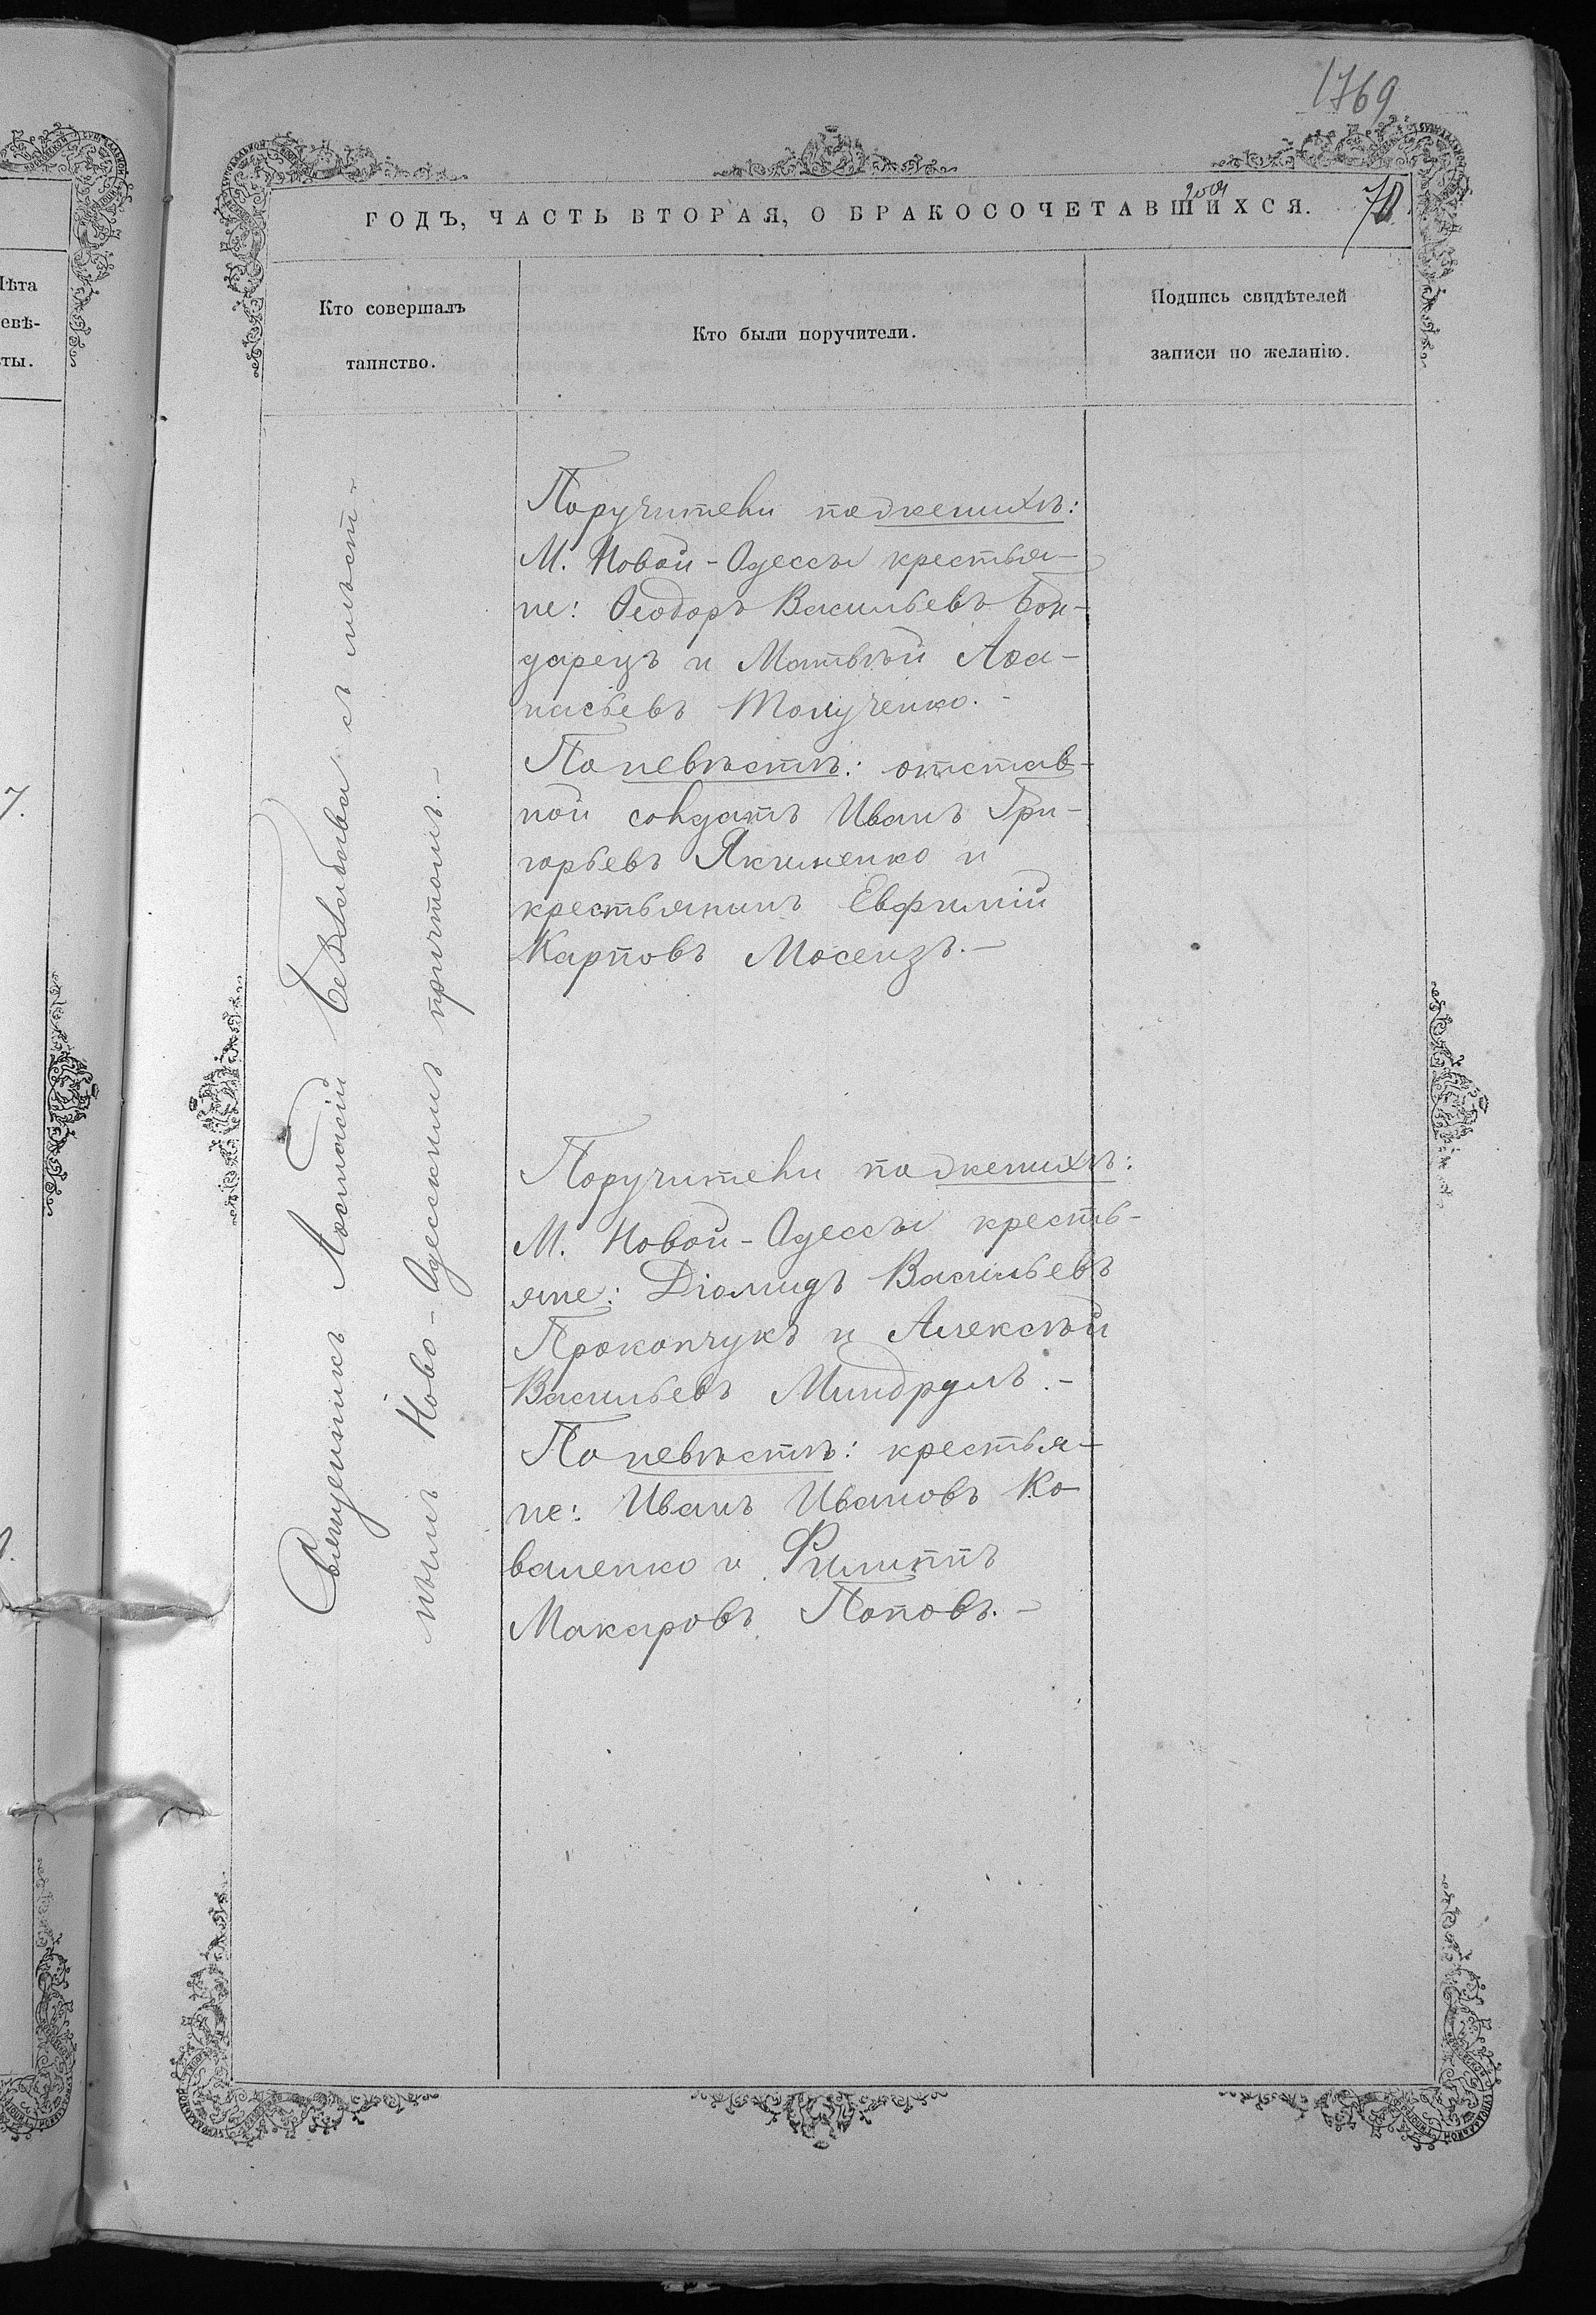 1769
ГОДЪ, ЧАСТЬ ВТОРАЯ, О БРАКОСОЧЕТАВШИХСЯ.
Лѣта
евѣ-
сты.
7.
Кто совершалъ
таинство.
Кто были поручители.
Подпись свидѣтелей
записи по желанію.
Священникъ
съ мѣст-
нымъ Ново-Одесскимъ причтомъ.-
Поручители по женихѣ:
М. Новой-Одессы крестья-
не: Ѳеодоръ Васильевъ Бон-
дарецъ и Матвѣй Аѳа-
насьевъ Толученко.-
По невѣстѣ: отстав-
ной солдатъ Иванъ Гри-
горьевъ Якименко и
крестьянинъ Евфимій
Карповъ Мосензъ.-
Поручители по женихѣ:
М. Новой-Одессы кресть-
яне: Діомидъ Васильевъ
Прокопчукъ и Алексѣй
Васильевъ Миндрулъ.-
По невѣстѣ: крестья-
не: Иванъ Ивановъ Ко
валенко и Филиппъ
Макаровъ Поповъ.-